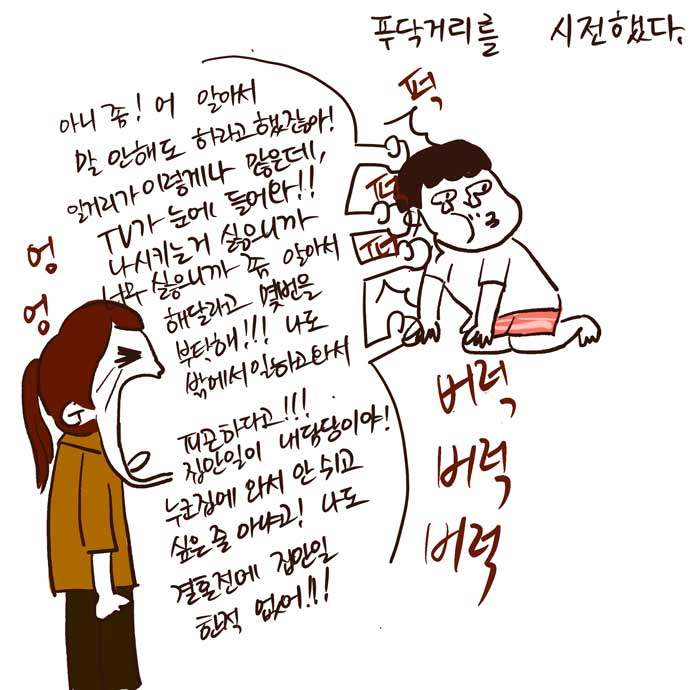 푸닥거리를 시전했다.
아니 좀! 어 알아서
말 안해도 하라고 했잖아!
일거리가 이렇게나 많은데,
TV가 눈에 들어와!!
나시키는거 싫으니까
너무 싫으니까 좀 알아서
해달라고 몇번을
부탁해!!! 나도
밖에서 일하고와서
피곤하다고!!!
집안일이 내담당이야!
누군집에 와서 안 쉬고
싶은줄 아냐고! 나도
결혼전에 집안일
한적 없어!!!
엉
엉
퍽
퍽
퍽
버럭
버럭
버럭